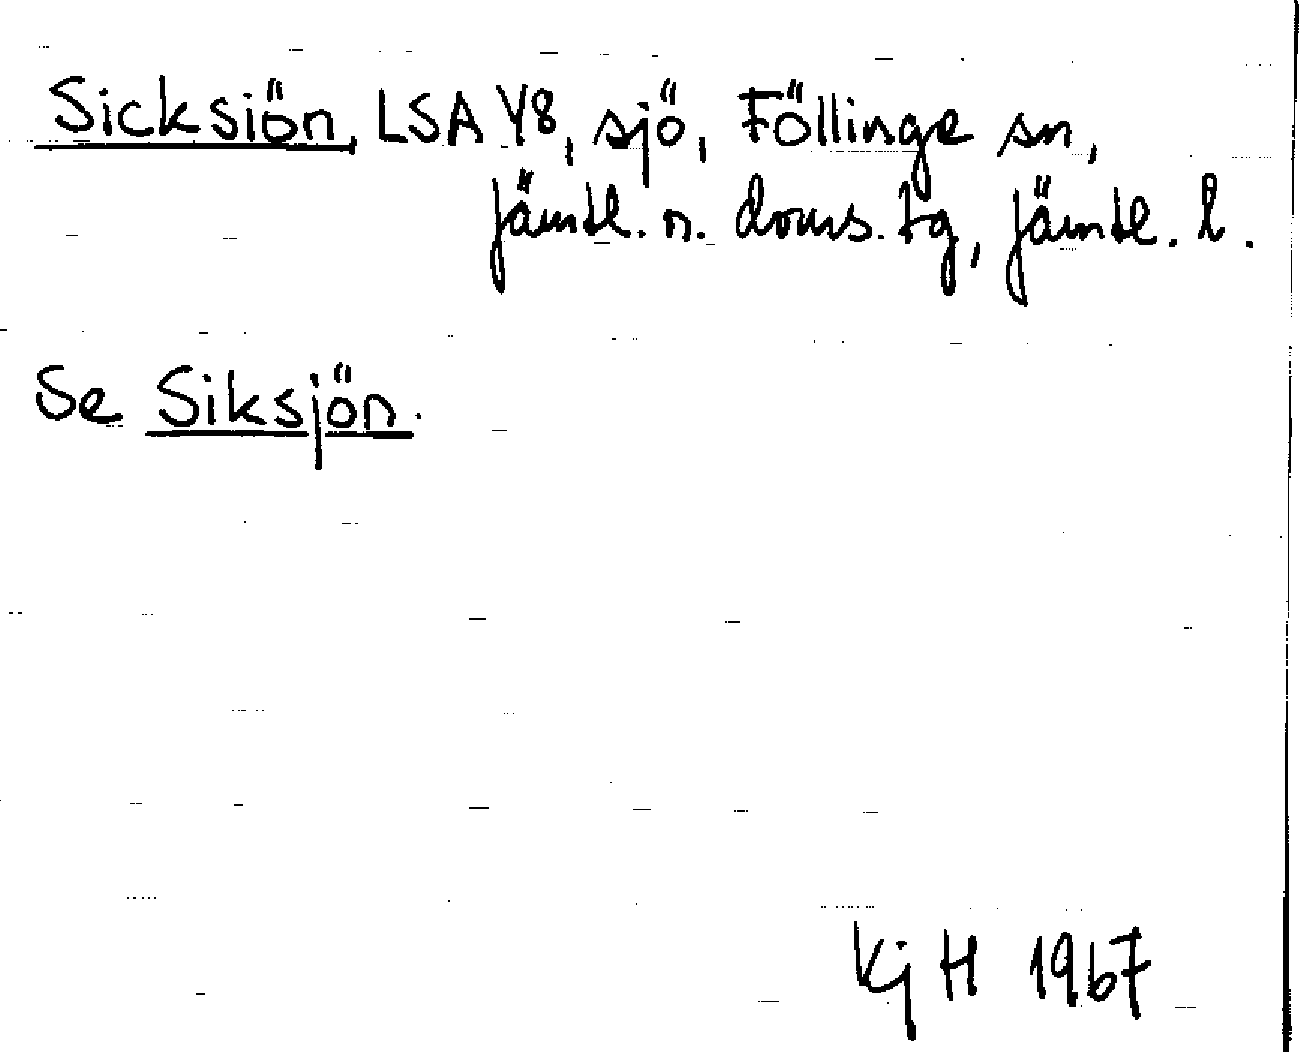 Sicksiön, LSA Y8, sjö, Föllinge sn,
Jämtl. n. doms. tg, Jämtl. l.
Se Siksjön.
Kj H 1967